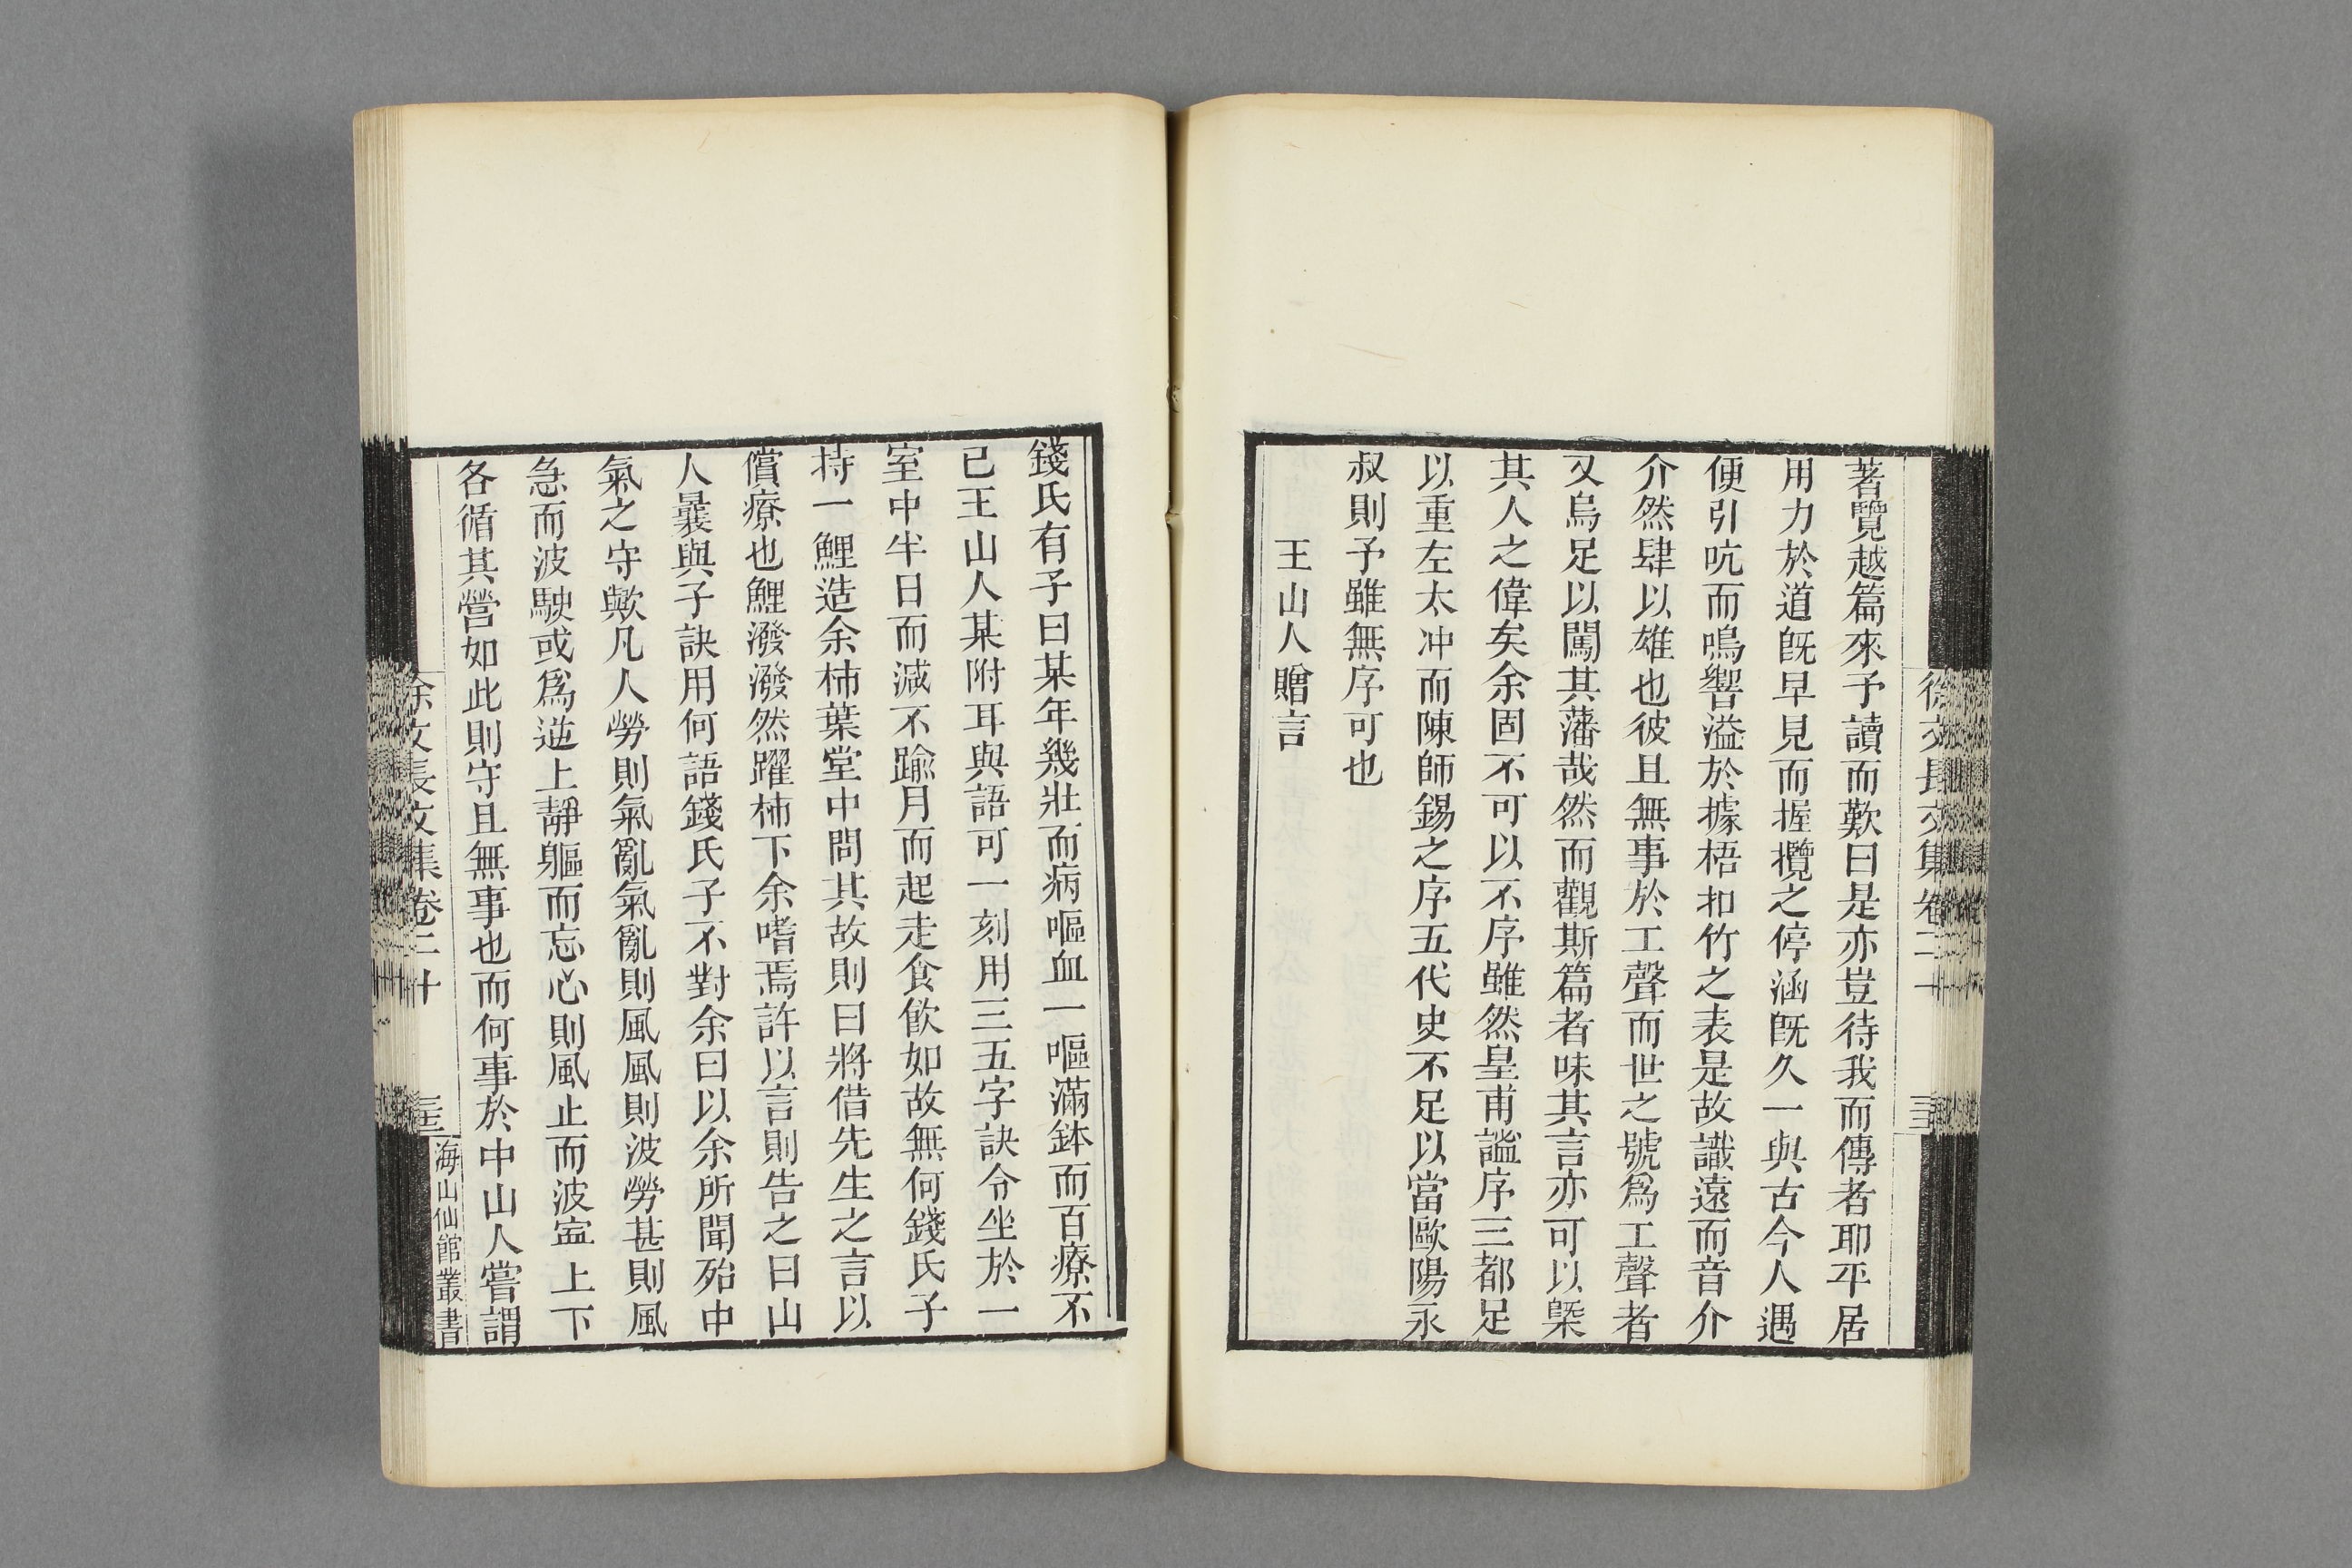 徐文長文集卷二十
著覽越篇來予讀而歎曰是亦豈待我而傳者耶平居
用力於道旣早見而握攬之停涵旣久一與古今人遇
便引吭而鳴響溢於據梧扣竹之表是故識遠而音介
介然肆以雄也彼且無事於工聲而世之號爲工聲者
又烏足以闖其藩哉然而觀斯篇者味其言亦可以槩
其人之偉矣余固不可以不序雖然皇甫謐序三都足
以重左太冲而陳師錫之序五代史不足以當歐陽永
叔則予雖無序可也
王山人贈言
錢氏有子曰某年幾壯而病嘔血一嘔滿鉢而百療不
已王山人某附耳與語可一刻用三五字訣令坐於一
室中半日而減不踰月而起走食飮如故無何錢氏子
持一鯉造余柿葉堂中問其故則曰將借先生之言以
償療也鯉潑潑然躍柿下余嗜焉許以言則告之曰山
人曩與子訣用何語錢氏子不對余曰以余所聞殆中
氣之守歟凡人勞則氣亂氣亂則風風則波勞甚則風
急而波駛或爲逆上靜軀而忘心則風止而波寍上下
各循其營如此則守且無事也而何事於中山人嘗謂
徐文長文集卷二十
海山仙館叢書